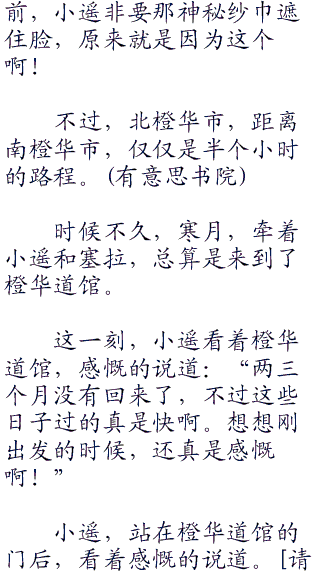 前，小遥非要那神秘纱巾遮
住脸，原来就是因为这个
啊！
不过，北橙华市，距离
南橙华市，仅仅是半个小时
的路程。(有意思书院)
时候不久，寒月，牵着
小遥和塞拉，总算是来到了
橙华道馆。
这一刻，小遥看着橙华
道馆，感慨的说道：“两三
个月没有回来了，不过这些
日子过的真是快啊。想想刚
出发的时候，还真是感慨
啊！”
小遥，站在橙华道馆的
门后，看着感慨的说道。[请